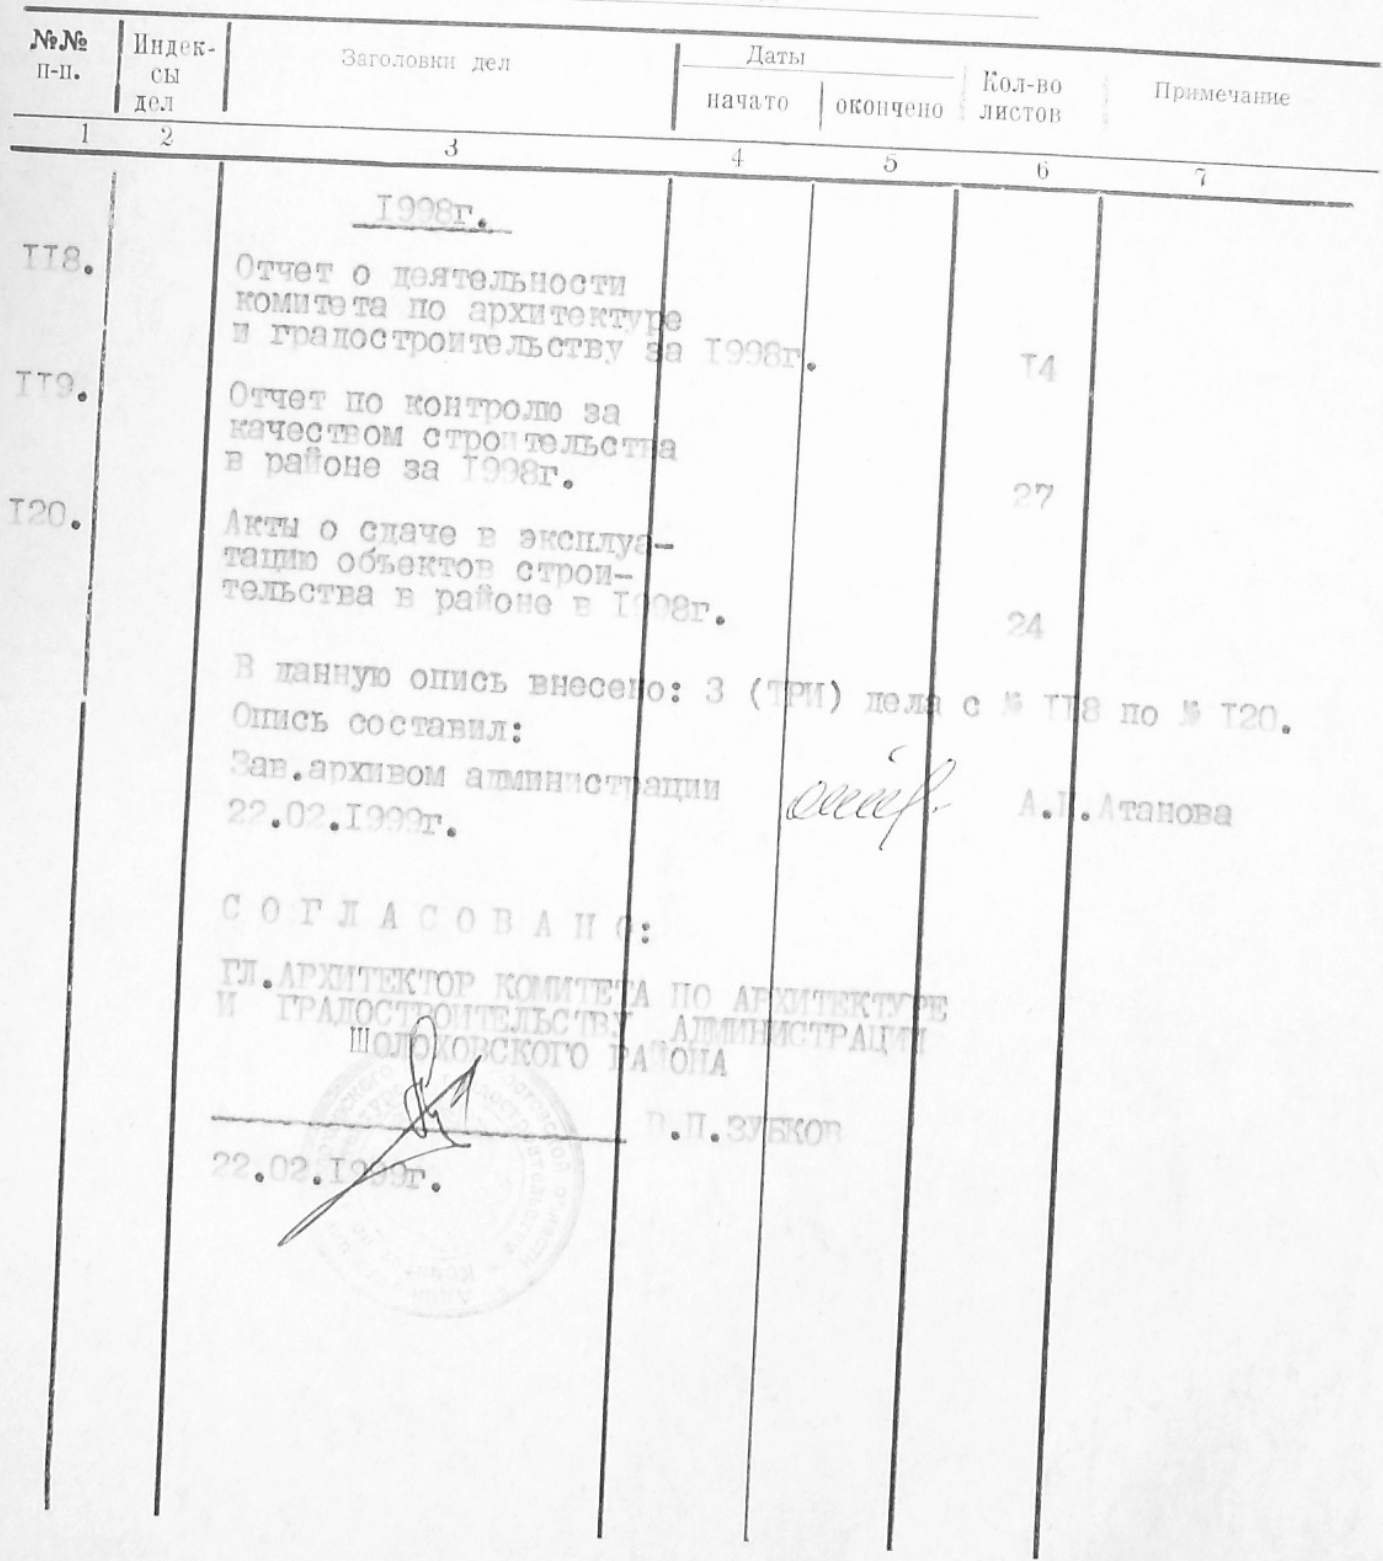 №№ п-п. Индек-сы дел Заголовки дел Даты начато окончено Кол-во листов Примечание
1 2 3 4 5 6 7
I998г.
II8. Отчет о деятельности
комитета по архитектуре
и градостроительству за I998г. I4
II9. Отчет по контролю за
качеством строительства
в районе за I998г. 27
I20. Акты о сдаче в эксплуа-
тацию объектов строи-
тельства в районе в I998г. 24
В данную опись внесено: 3 (ТРИ) дела с № II8 по № I20.
Опись составил:
Зав.архивом администрации А.П.Атанова
22.02.I999г.
С О Г Л А С О В А Н О:
ГЛ.АРХИТЕКТОР КОМИТЕТА ПО АРХИТЕКТУРЕ
И ГРАДОСТРОИТЕЛЬСТВУ АДМИНИСТРАЦИИ
ШОЛОХОВСКОГО РАЙОНА
В.П.ЗУБКОВ
22.02.I999г.